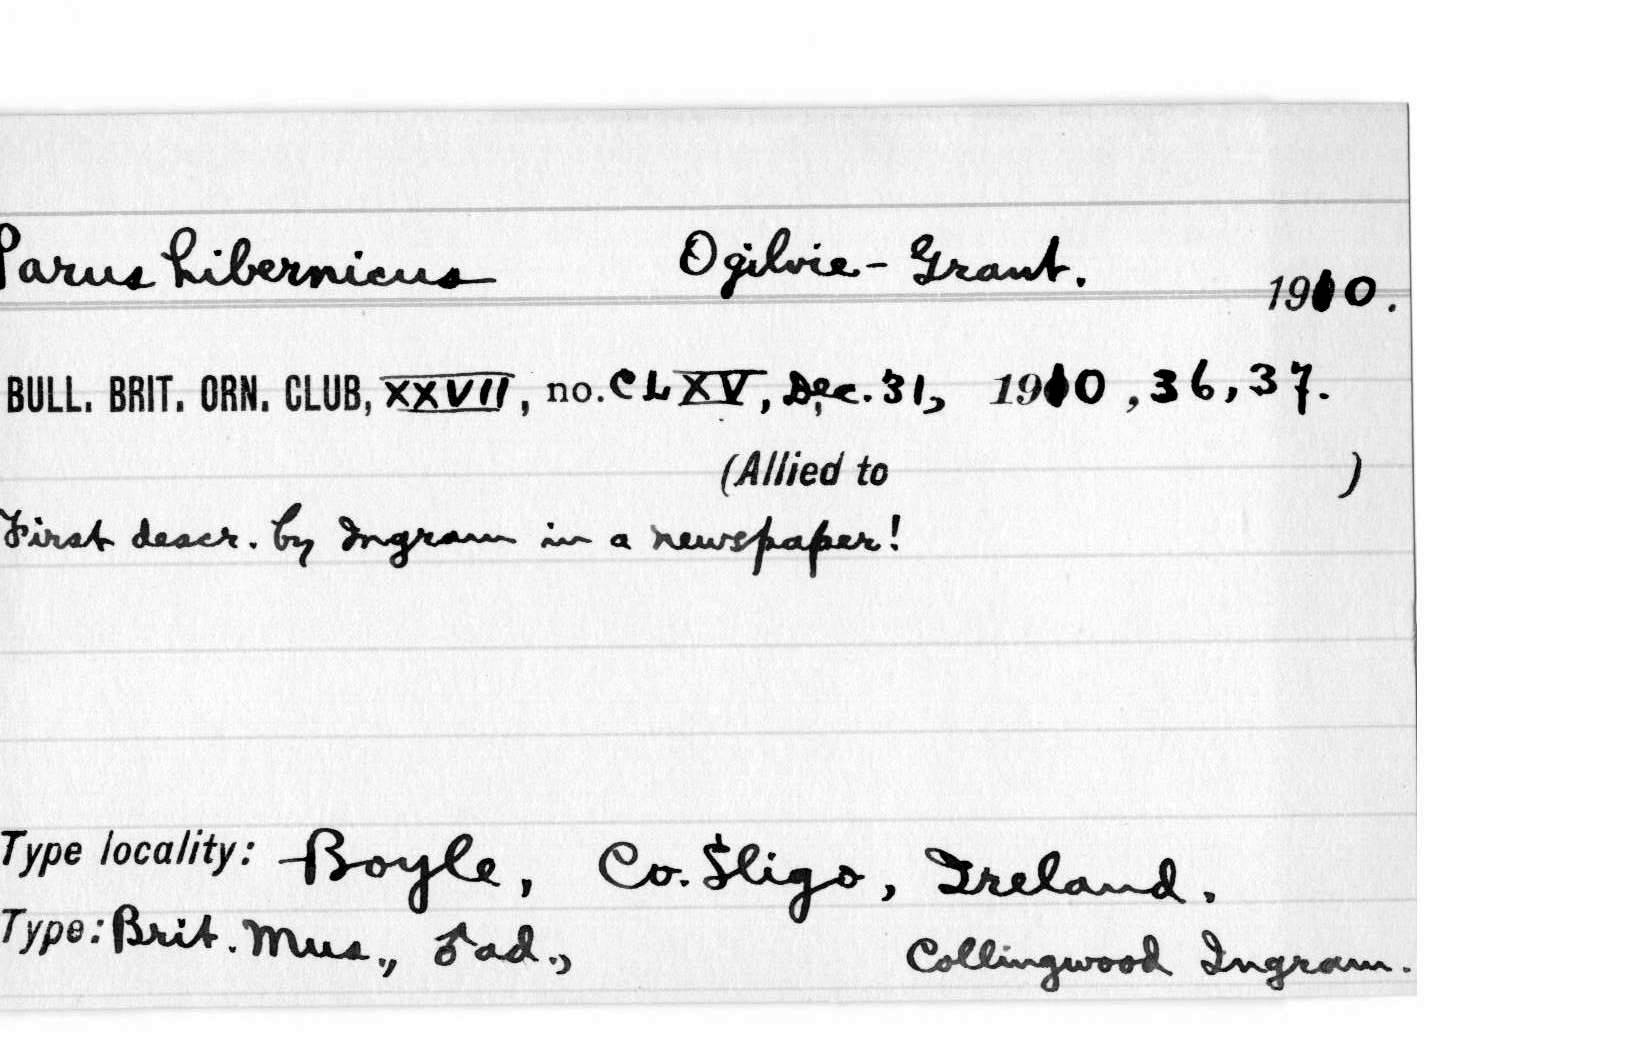 Parus hibernicus Ogilvie-Grant. 1910.
BULL. BRIT. ORN. CLUB, XXVII, no. CLXV, Dec. 31, 1910, 36, 37.
(Allied to )
First descr. by Ingram in a newspaper!
Type locality: Boyle, Co. Sligo, Ireland.
Type: Brit. Mus., ♂ ad., Collingwood Ingram.